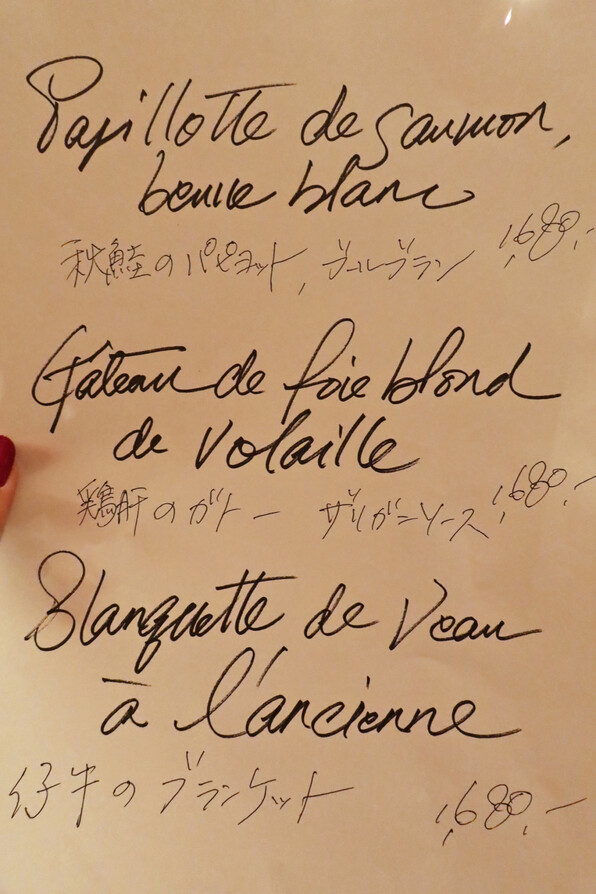 Papillotte de saumon,
beurre blanc
秋鮭のパピヨット, ブールブラン 1,680.-
Gâteau de foie blond
de volaille
鶏肝のガトー ザリガニソース 1,680.-
Blanquette de Veau
à l'ancienne
仔牛のブランケット 1,680.-